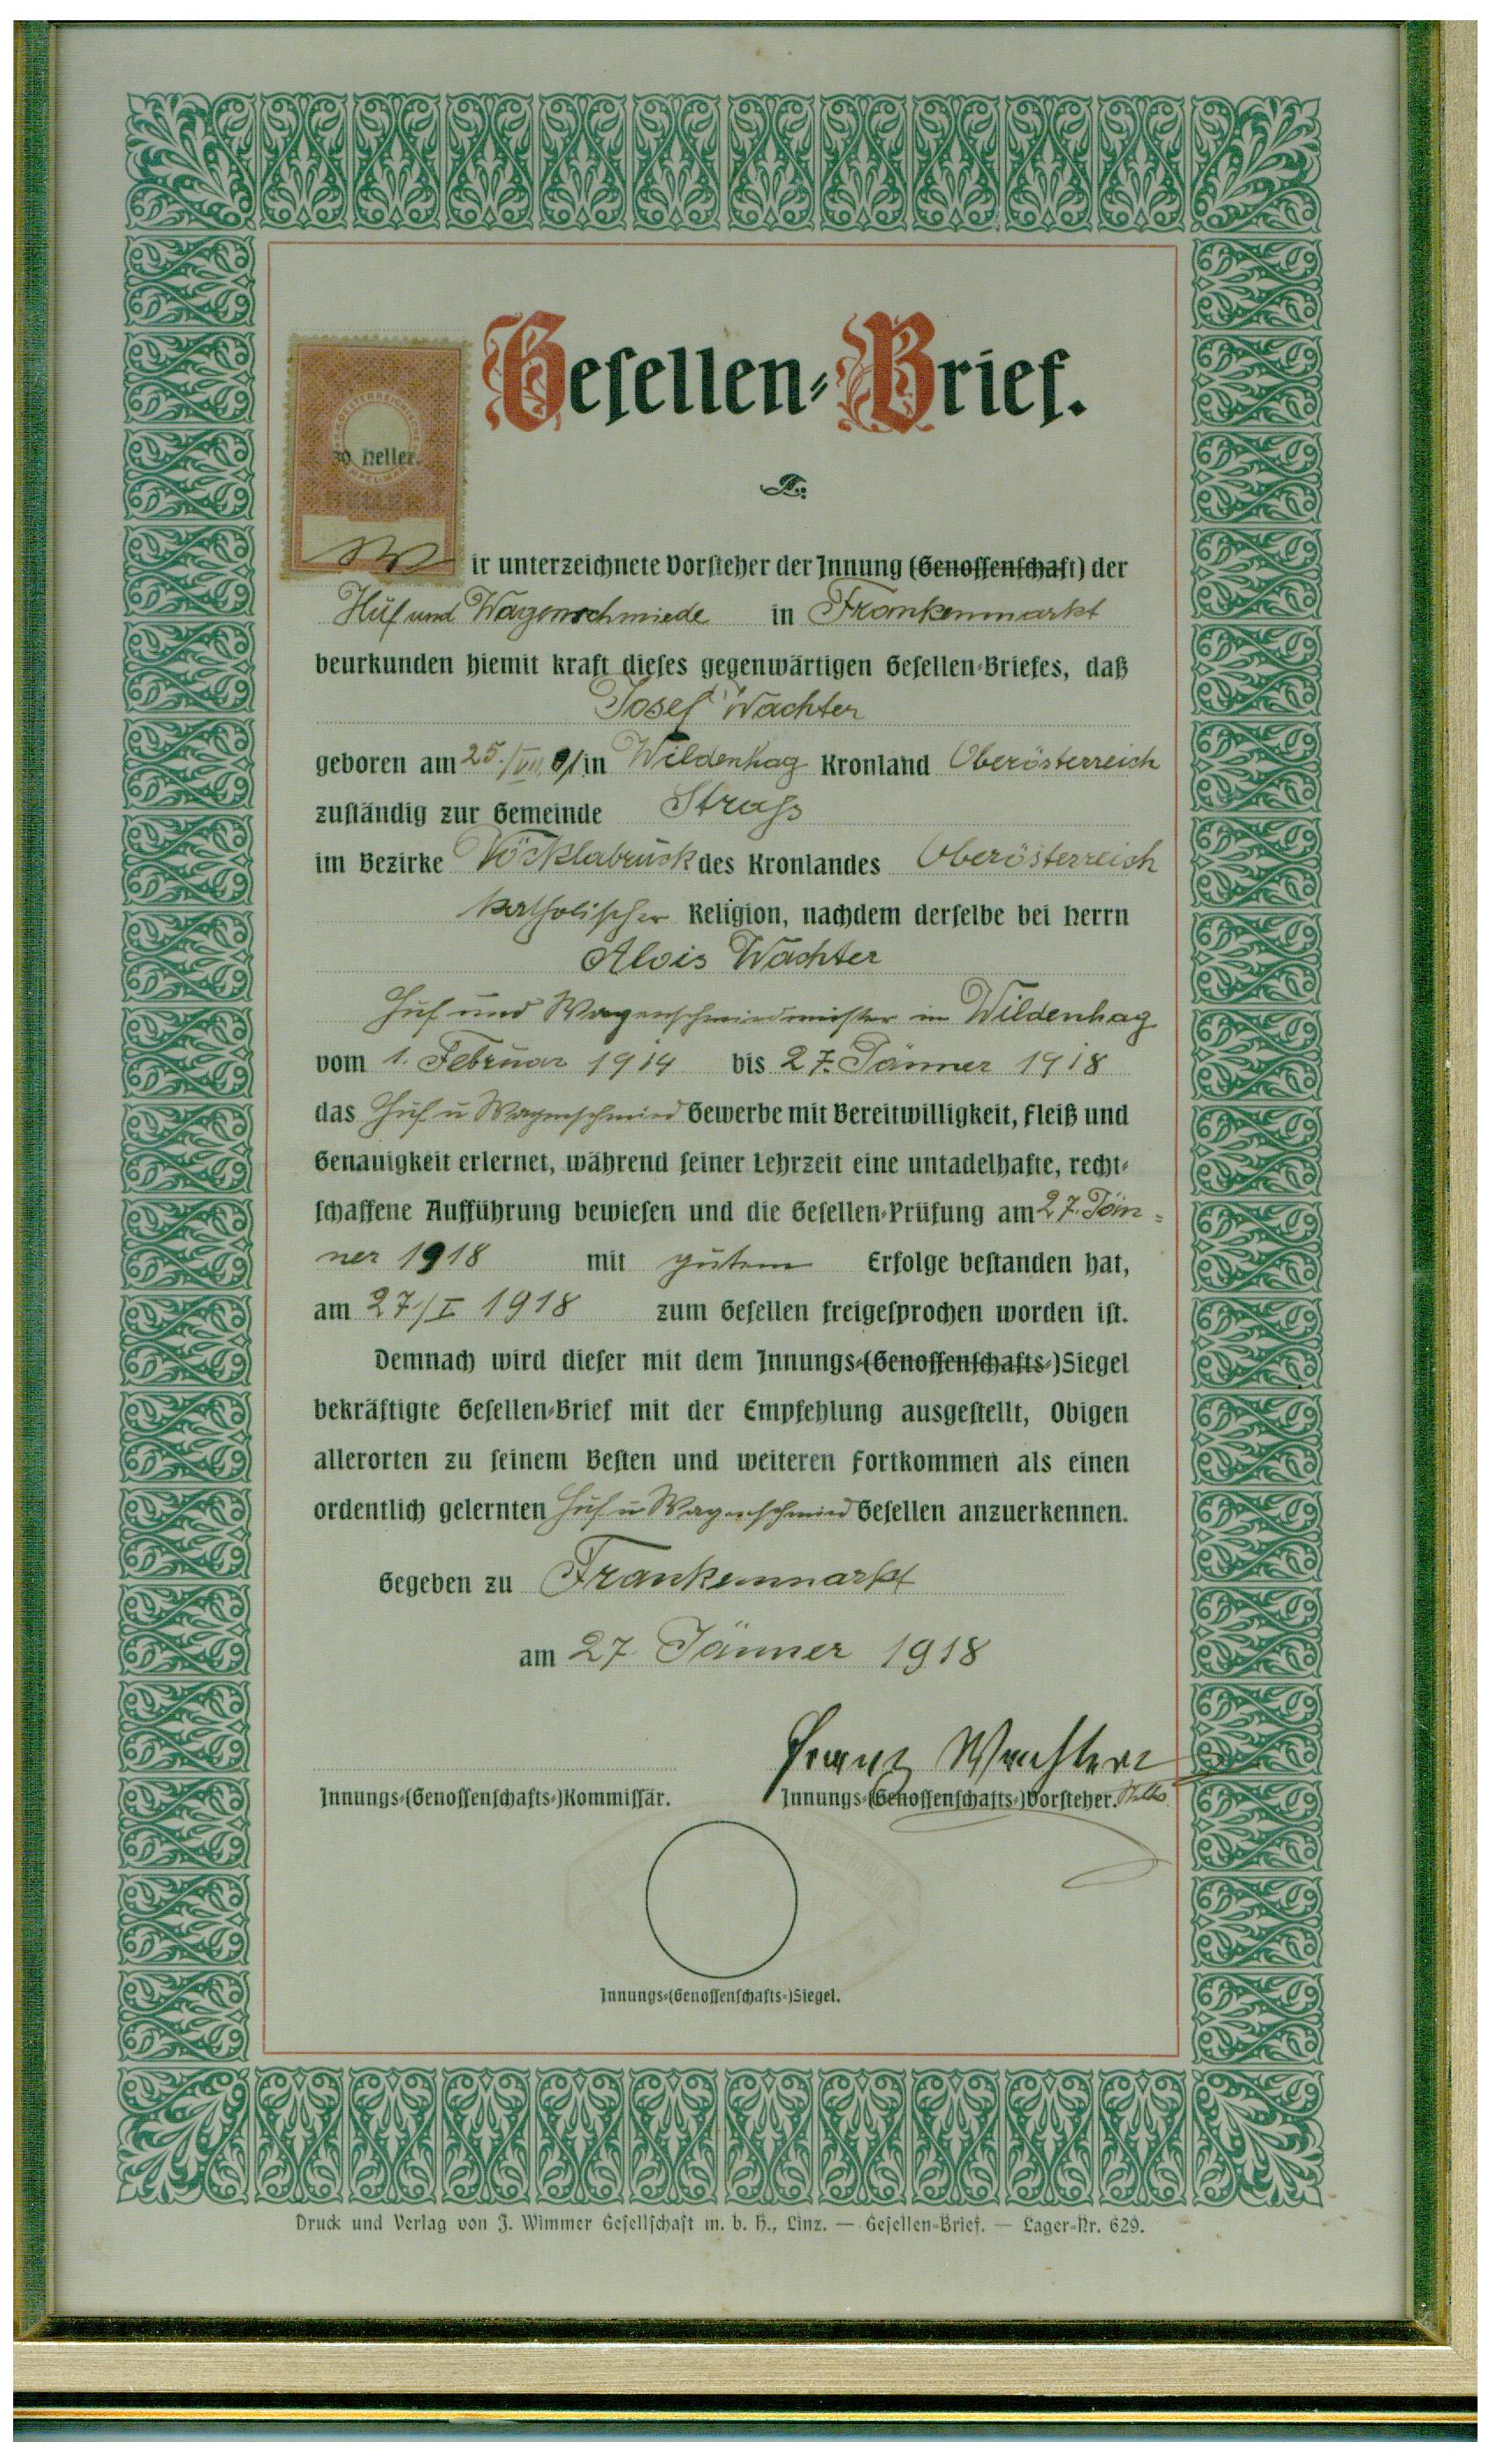 Gesellen-Brief.
K.K. OESTERREICHISCHE
STEMPEL-MARKE
30 Heller.
Wir unterzeichnete Vorsteher der Innung (Genossenschaft) der
Huf und Wagenschmiede in Frankenmarkt
beurkunden hiemit kraft dieses gegenwärtigen Gesellen-Briefes, daß
Josef Wachter
geboren am 25./VIII 01 in Wildenhag Kronland Oberösterreich
zuständig zur Gemeinde Strass
im Bezirke Vöcklabruck des Kronlandes Oberösterreich
katholischer Religion, nachdem derselbe bei Herrn
Alois Wachter
Huf und Wagenschmiedmeister in Wildenhag
vom 1. Februar 1914 bis 27. Jänner 1918
das Huf u Wagenschmied Gewerbe mit Bereitwilligkeit, Fleiß und
Genauigkeit erlernet, während seiner Lehrzeit eine untadelhafte, recht-
schaffene Aufführung bewiesen und die Gesellen-Prüfung am 27. Jän=
ner 1918 mit gutem Erfolge bestanden hat,
am 27/I 1918 zum Gesellen freigesprochen worden ist.
Demnach wird dieser mit dem Innungs-(Genossenschafts-)Siegel
bekräftigte Gesellen-Brief mit der Empfehlung ausgestellt, Obigen
allerorten zu seinem Besten und weiteren Fortkommen als einen
ordentlich gelernten Huf u Wagenschmied Gesellen anzuerkennen.
Gegeben zu Frankenmarkt
am 27. Jänner 1918
Franz Wachter
Innungs-(Genossenschafts-)Kommissär.
Innungs-(Genossenschafts-)Vorsteher.
Innungs-(Genossenschafts-)Siegel.
Druck und Verlag von J. Wimmer Gesellschaft m. b. H., Linz. — Gesellen-Brief. — Lager-Nr. 629.